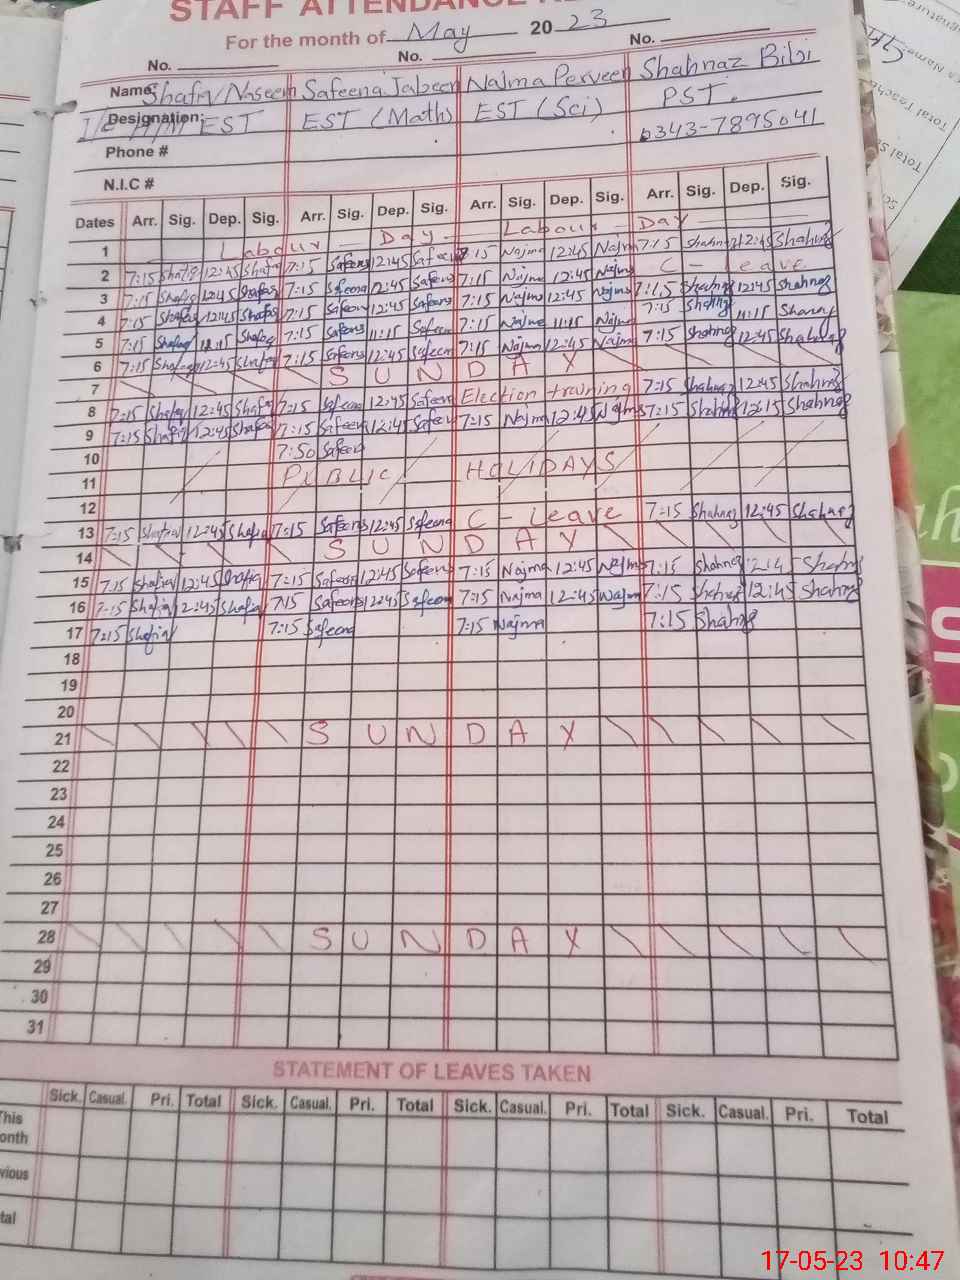 STAFF ATTENDANCE RE
For the month of May 20 23
No. No. No.
Name: Shafiq Naseem Safeena Jabeen Najma Perveen Shahnaz Bibi
Designation: I/C H/M EST EST (Math) EST (Sci) PST.
Phone # 0343-7895041
N.I.C #
Dates Arr. Sig. Dep. Sig. Arr. Sig. Dep. Sig. Arr. Sig. Dep. Sig. Arr. Sig. Dep. Sig.
1 Labour Day Labour Day
2 7:15 Shafiq 12:45 Shafiq 7:15 Safeena 12:45 Safeena 7:15 Najma 12:45 Najma 7:15 Shahnaz 12:45 Shahnaz
3 7:15 Shafiq 12:45 Shafiq 7:15 Safeena 12:45 Safeena 7:15 Najma 12:45 Najma C - Leave
4 7:15 Shafiq 12:45 Shafiq 7:15 Safeena 12:45 Safeena 7:15 Najma 12:45 Najma 7:15 Shahnaz 12:45 Shahnaz
5 7:15 Shafiq 11:15 Shafiq 7:15 Safeena 11:15 Safeena 7:15 Najma 11:15 Najma 7:15 Shahnaz 11:15 Shahnaz
6 7:15 Shafiq 12:45 Shafiq 7:15 Safeena 12:45 Safeena 7:15 Najma 12:45 Najma 7:15 Shahnaz 12:45 Shahnaz
7 SUNDAY
8 7:15 Shafiq 12:45 Shafiq 7:15 Safeena 12:45 Safeena Election training 7:15 Shahnaz 12:45 Shahnaz
9 7:15 Shafiq 12:45 Shafiq 7:15 Safeena 12:45 Safeena 7:15 Najma 12:45 Najma 7:15 Shahnaz 12:15 Shahnaz
10 7:50 Safeena
11 PUBLIC HOLIDAYS
12
13 7:15 Shafiq 12:45 Shafiq 7:15 Safeena 12:45 Safeena C - Leave 7:15 Shahnaz 12:45 Shahnaz
14 SUNDAY
15 7:15 Shafiq 12:45 Shafiq 7:15 Safeena 12:45 Safeena 7:15 Najma 12:45 Najma 7:15 Shahnaz 12:45 Shahnaz
16 7:15 Shafiq 12:45 Shafiq 7:15 Safeena 12:45 Safeena 7:15 Najma 12:45 Najma 7:15 Shahnaz 12:45 Shahnaz
17 7:15 Shafiq 7:15 Safeena 7:15 Najma 7:15 Shahnaz
18
19
20
21 SUNDAY
22
23
24
25
26
27
28 SUNDAY
29
30
31
STATEMENT OF LEAVES TAKEN
Sick. Casual. Pri. Total Sick. Casual. Pri. Total Sick. Casual. Pri. Total Sick. Casual. Pri. Total
This
onth
vious
tal
17-05-23 10:47